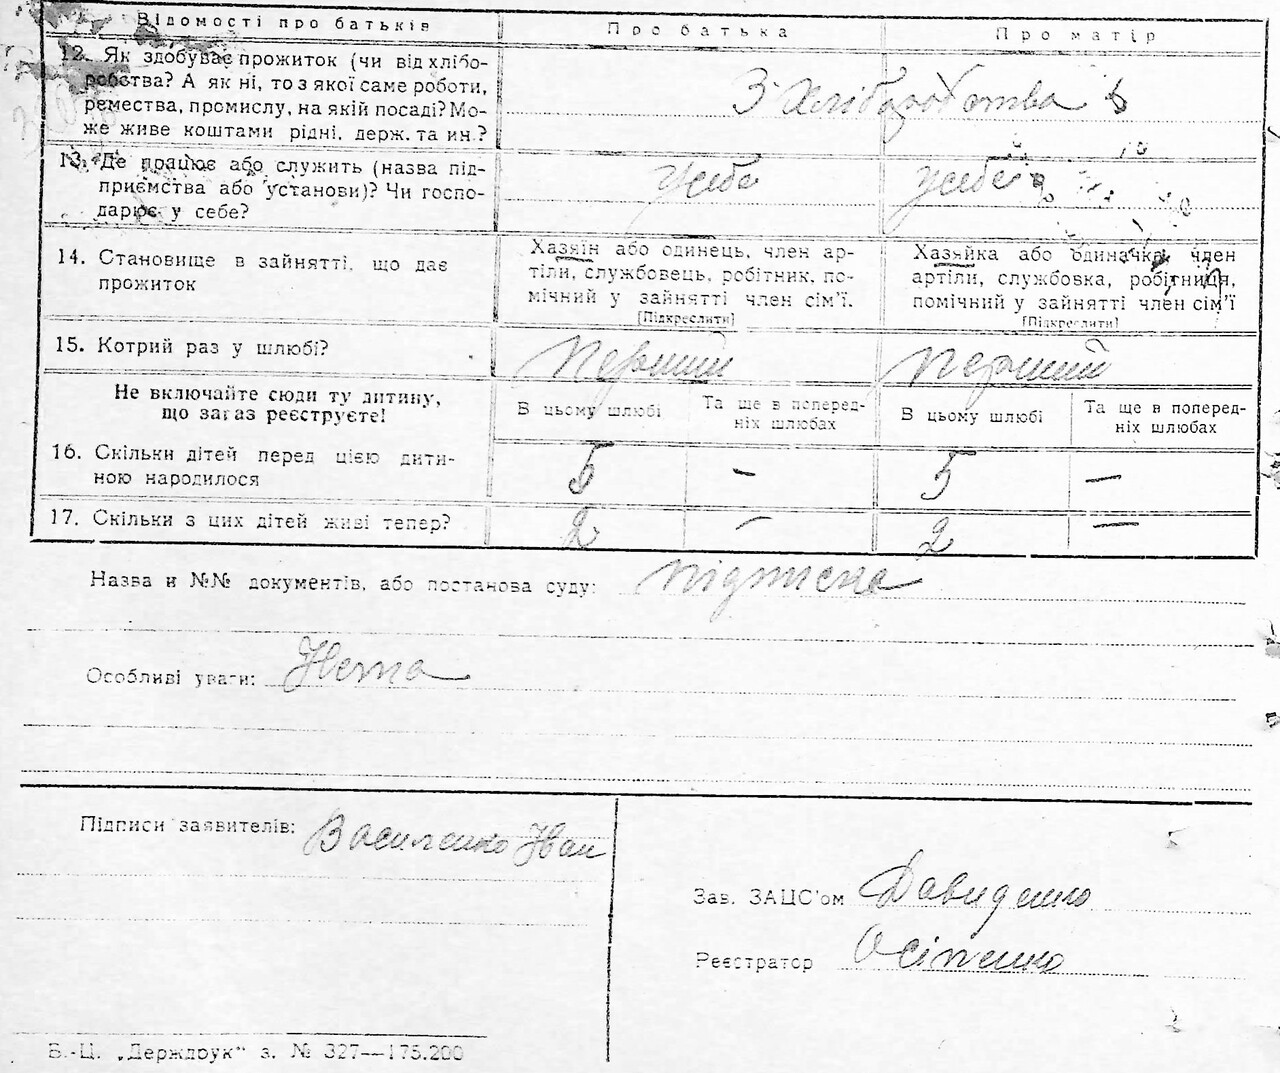 Відомості про батьків Про батька Про матір
12. Як здобуває прожиток (чи від хлібо-
робства? А як ні, то з якої саме роботи,
ремества, промислу, на якій посаді? Мо-
же живе коштами рідні, держ. та ин.?
З хліборобства
13. Де працює або служить (назва під-
приємства або установи)? Чи госпо-
дарює у себе?
У себе у себе
14. Становище в зайнятті, що дає
прожиток
Хазяїн або одинець, член ар-
тіли, службовець, робітник, по-
мічний у зайнятті член сім'ї.
[Підкреслити]
Хазяйка або одиначка, член
артіли, службовка, робітниця,
помічний у зайнятті член сім'ї
[Підкреслити]
15. Котрий раз у шлюбі? Перший Перший
Не включайте сюди ту дитину,
що зараз реєструєте!
В цьому шлюбі Та ще в поперед-
ніх шлюбах В цьому шлюбі Та ще в поперед-
ніх шлюбах
16. Скільки дітей перед цією дити-
ною народилося
5 — 5 —
17. Скільки з цих дітей живі тепер? 2 — 2 —
Назва и №№ документів, або постанова суду: підписка
Особливі уваги: Нема
Підписи заявителів: Василенко Іван
Зав. ЗАЦС'ом Давиденко
Реєстратор Осіпенко
Б.-Ц. „Держдрук“ з. № 327—175.200